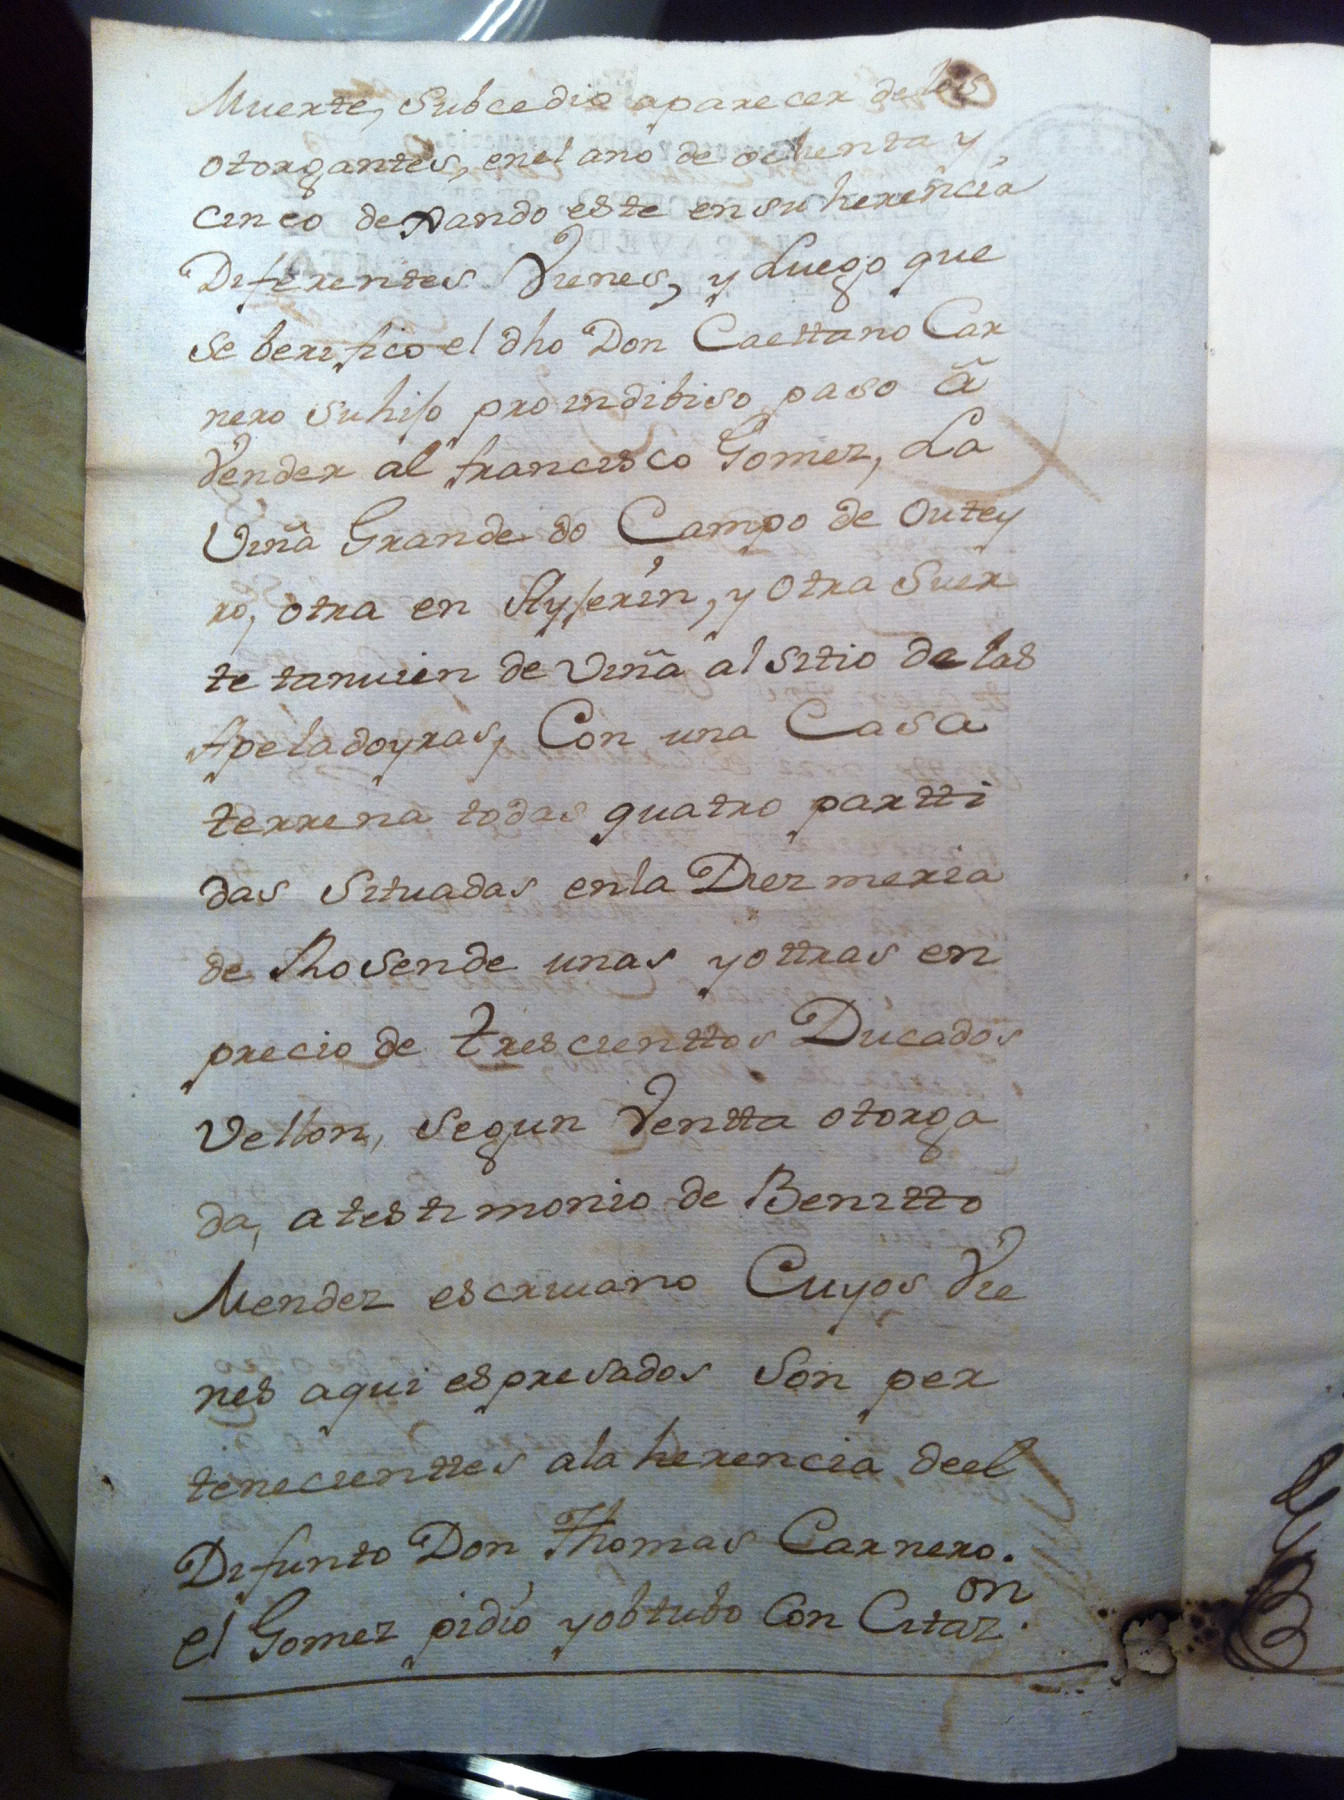 Muerte, Subcedio aparecer de los
otorgantes, en el ano de ochenta y
cinco dexando este en su herencia
Diferentes Vienes, y Luego que
se berifico el dho Don Caettano Car
nero su hijo proindibiso paso â
Vender al francisco Gomez, La
Viña Grande do Campo de Outey
ro, otra en Ayxerin, y otra Suer
te tanvien de Viña al sitio de las
Apeladoyras, Con una Casa
terrena todas quatro partti
das Situadas en la Diezmeria
de Rosende unas y ottras en
precio de trescienttos Ducados
Vellon, segun Ventta otorga
da, a testimonio de Benitto
Mendez escrivano Cuyos Vie
nes aqui espresados son per
tenecienttes a la herencia de el
Difunto Don Thomas Carnero.
el Gomez pidio y obtubo Con Citaz.on